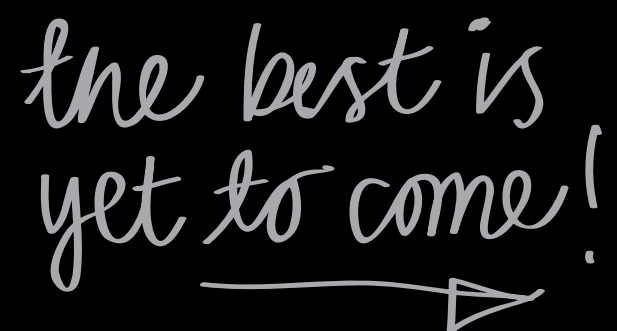 the best is
yet to come!